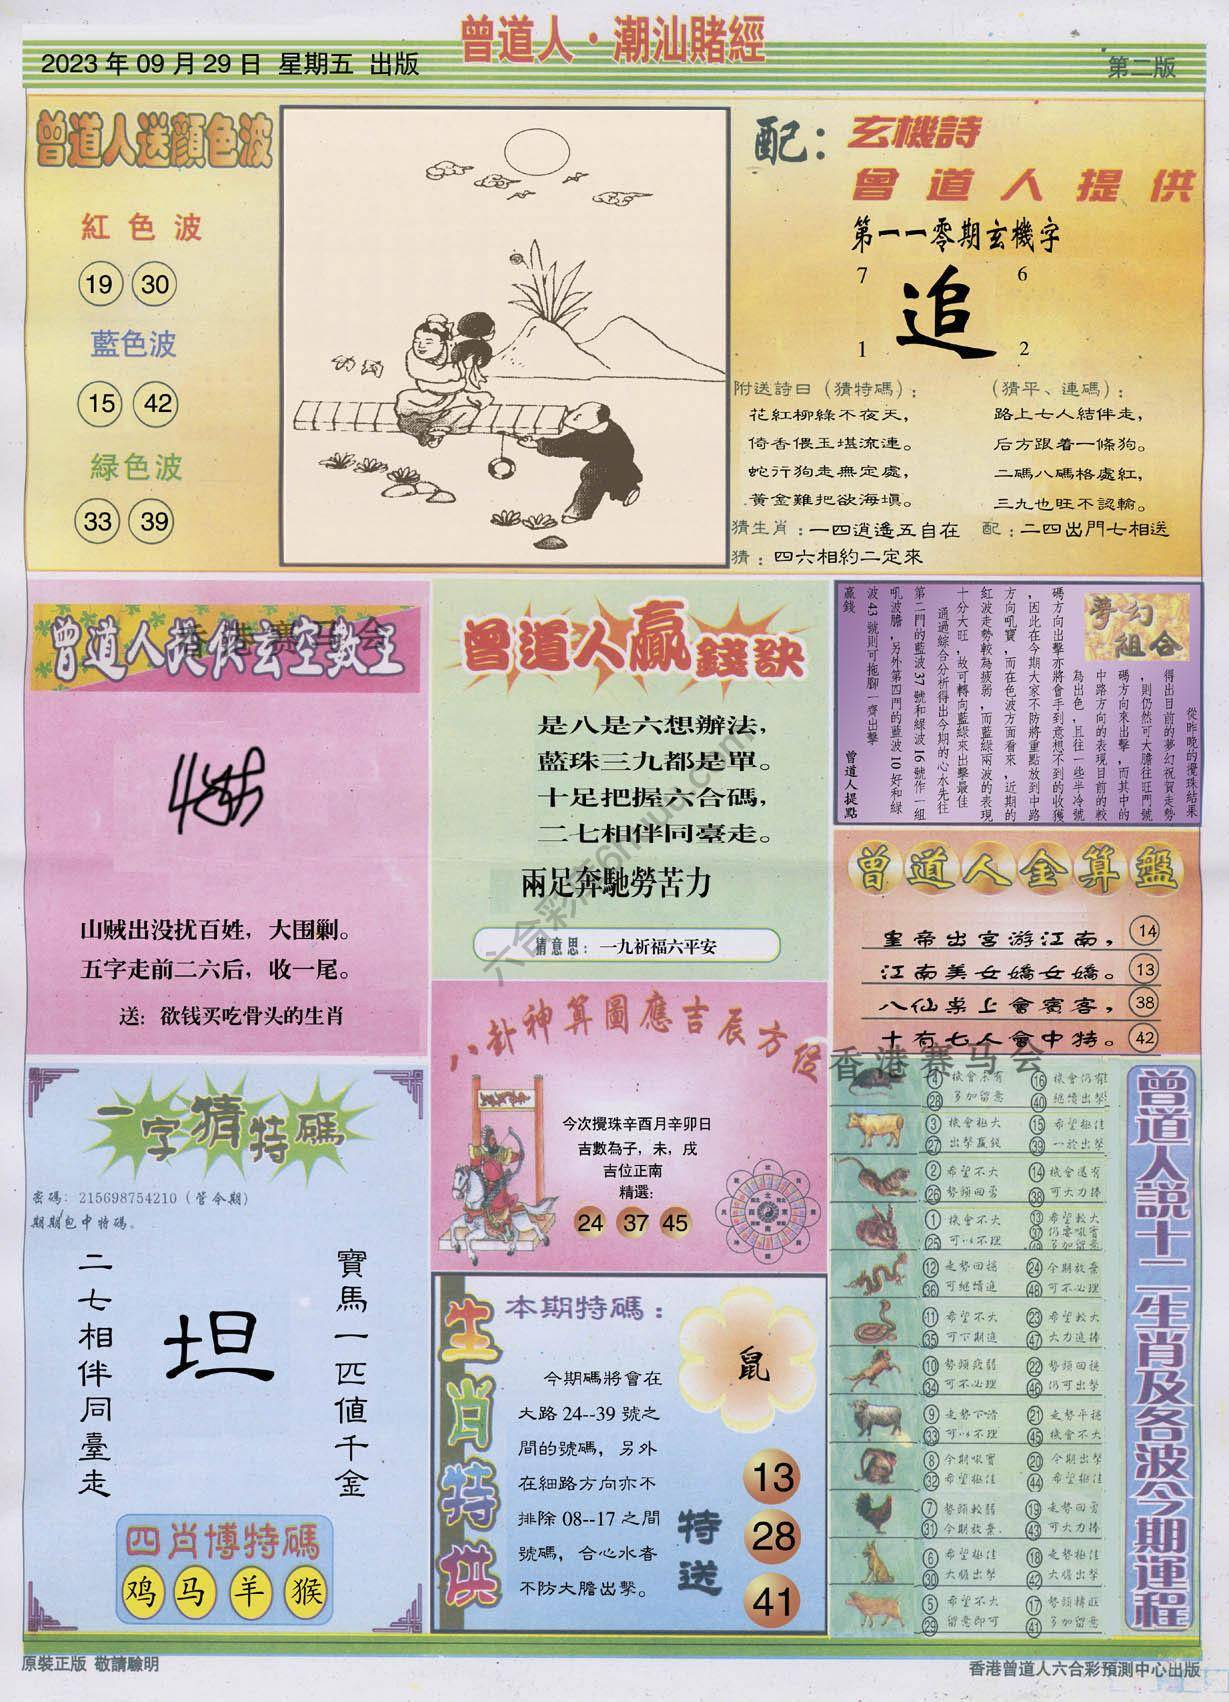 曾道人·潮汕賭經
2023 年 09 月 29 日 星期五 出版
第二版
曾道人送顏色波
紅色波
19 30
藍色波
15 42
緑色波
33 39
配：
玄機詩
曾道人提供
第一一零期玄機字
7 6
追
1 2
附送詩曰（猜特碼）：
花紅柳綠不夜天，
倚香偎玉堪流連。
蛇行狗走無定處，
黃金難把欲海填。
（猜平、連碼）：
路上七人結伴走，
后方跟着一條狗。
二碼八碼格處紅，
三九也旺不認輸。
猜生肖：一四逍遙五自在 配：二四出門七相送
猜：四六相約二定來
曾道人提供玄空數王
香港赛马会
山贼出没扰百姓，大围剿。
五字走前二六后，收一尾。
送：欲钱买吃骨头的生肖
曾道人贏錢訣
是八是六想辦法，
藍珠三九都是單。
十足把握六合碼，
二七相伴同臺走。
兩足奔馳勞苦力
猜意思：一九祈福六平安
夢幻組合
從昨晚的攪珠結果
得出目前的夢幻祝賀走勢
，則仍然可大膽往旺門號
碼方向來出擊，而其中的
中路方向的表現目前的較
為出色，且往一些半冷號
碼方向出擊亦將會手到意想不到的收獲
，因此在今期大家不防將重點放到中路
方向吼寶，而在色波方面看來，近期的
紅波走勢較為疲弱，而藍綠兩波的表現
十分大旺，故可轉向藍綠來出擊最佳
通過綜合分析得出今期的心水先往
第二門的藍波 37 號和綠波 16 號作一組
吼波膽，另外第四門的藍波 10 好和綠
波 43 號則可拖腳一齊出擊
贏錢
曾道人提點
曾道人金算盤
皇帝出宮游江南， 14
江南美女嬌女嬌。 13
八仙桌上會賓客， 38
十有七人會中特。 42
香港赛马会
八卦神算圖應吉辰方位
今次攪珠辛酉月辛卯日
吉數為子，未，戌
吉位正南
精選：
24 37 45
一字猜特碼
密碼：215698754210（管令期）
期期包中特碼。
寶馬一匹值千金
坦
二七相伴同臺走
四肖博特碼
鸡 马 羊 猴
生肖特供
本期特碼：
鼠
今期碼將會在
大路 24--39 號之
間的號碼，另外
在細路方向亦不
排除 08--17 之間
號碼，合心水者
不防大膽出擊。
特送
13
28
41
曾道人說十二生肖及各波今期運程
4 機會未有 16 機會仍有
28 多加留意 40 繼續出擊
3 機會極大 15 希望極佳
27 出擊贏錢 39 一於出擊
2 希望不大 14 機會還有
26 勢頭回勇 38 可大力捧
1 機會不大 13 希望較大
25 可以不理 37 仍要吼實
49 多加留意
12 走勢回穩 24 今期放棄
36 可繼續進 48 可不必理
11 希望不大 23 希望較大
35 可下期進 47 大力進捧
10 勢頭疲弱 22 勢頭回穩
34 可不必理 46 仍可出擊
9 走勢下滑 21 走勢平穩
33 可以不理 45 機會不大
8 今期吼實 20 今期出擊
32 希望極佳 44 希望極佳
7 勢頭較弱 19 走勢回勇
31 今期放棄 43 可大力捧
6 希望極佳 18 走勢極佳
30 大膽出擊 42 大膽出擊
5 希望不大 17 勢頭轉旺
29 留意即可 41 多加留意
原裝正版 敬請驗明
香港曾道人六合彩預測中心出版